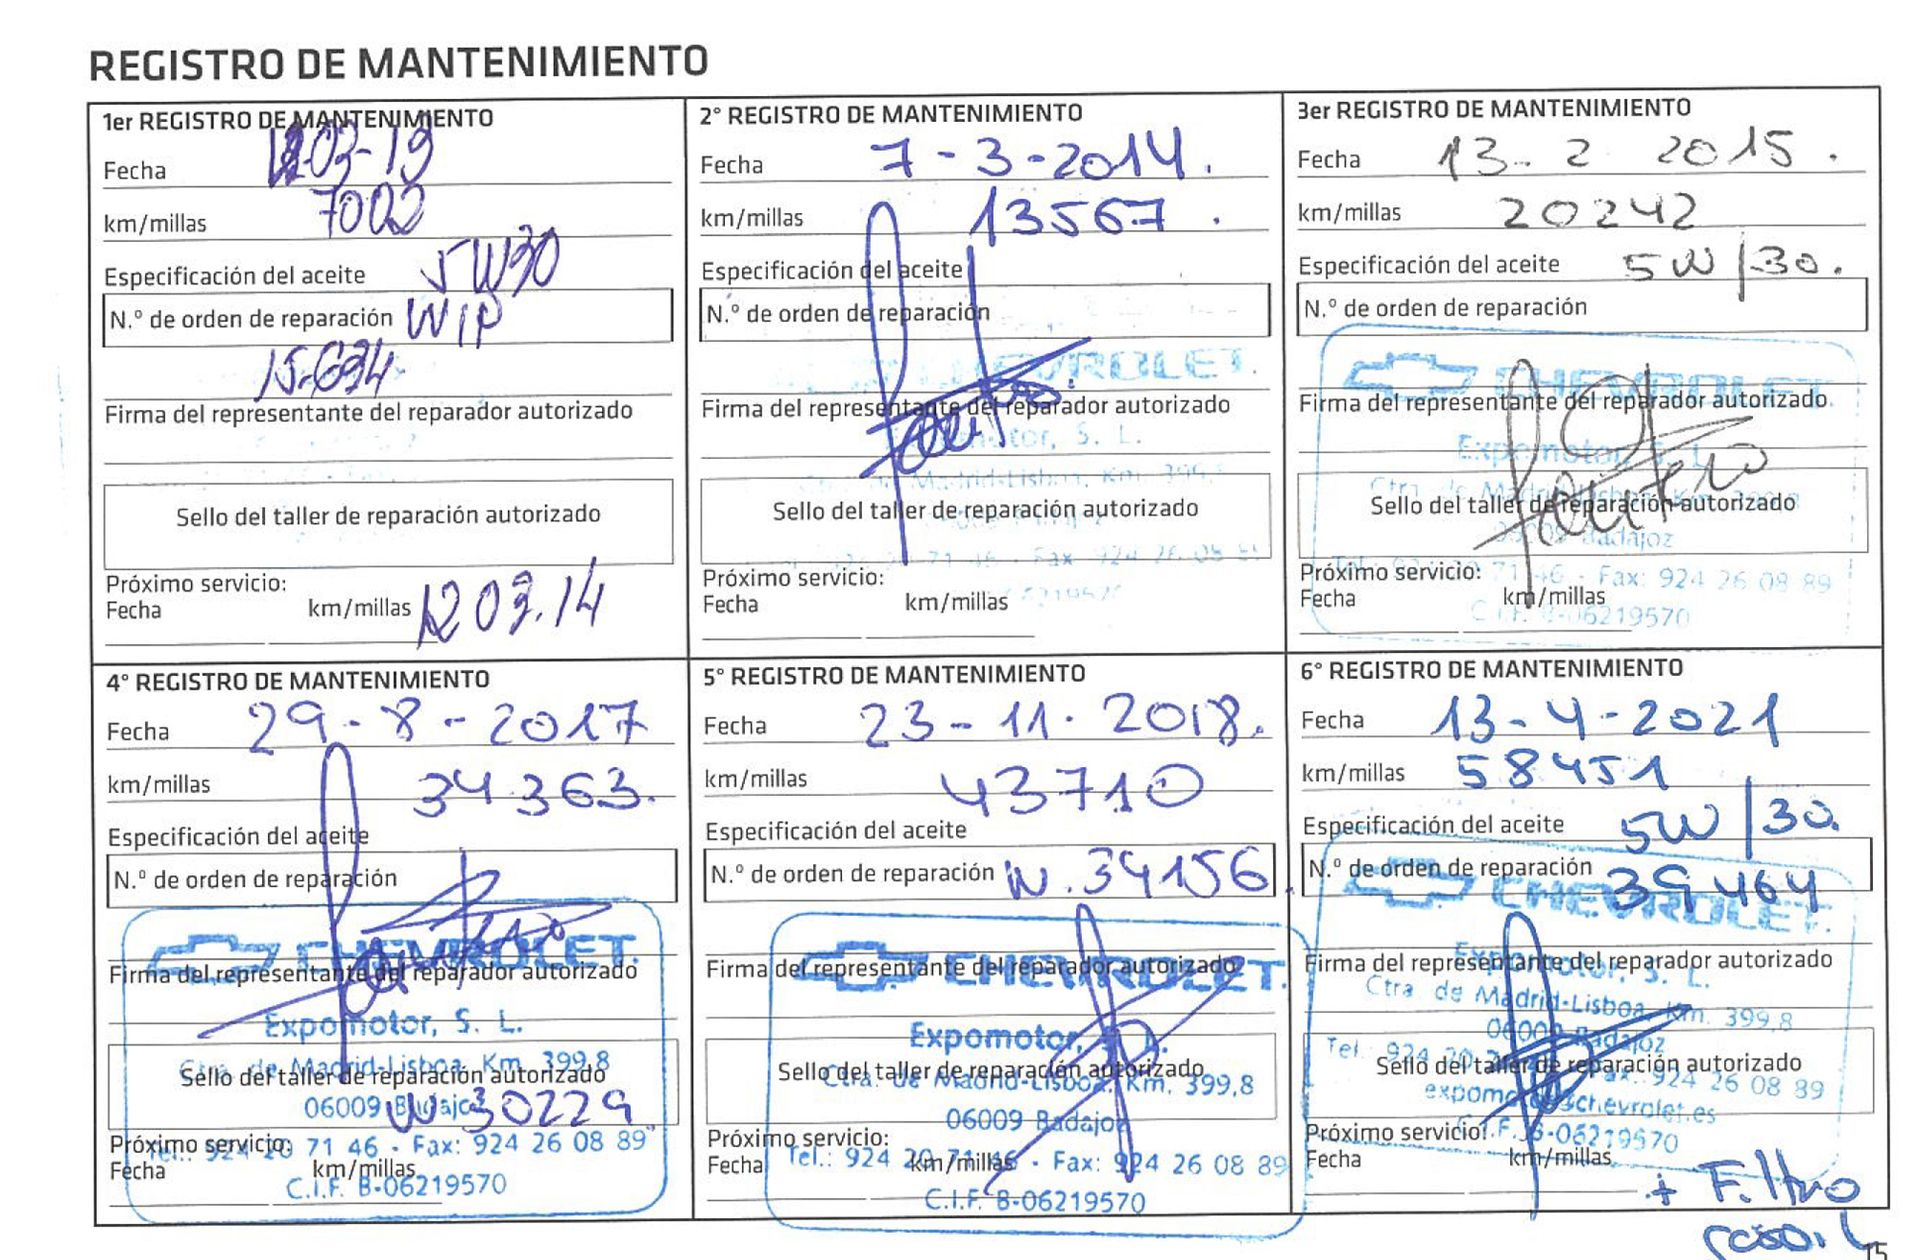 REGISTRO DE MANTENIMIENTO
1er REGISTRO DE MANTENIMIENTO
Fecha 12-03-13
km/millas 7002
Especificación del aceite 5W30
N.º de orden de reparación WIP
15-634
Firma del representante del reparador autorizado
Sello del taller de reparación autorizado
Próximo servicio:
Fecha km/millas 12 03.14
2° REGISTRO DE MANTENIMIENTO
Fecha 7-3-2014.
km/millas 13567.
Especificación del aceite
N.º de orden de reparación
CHEVROLET.
Firma del representante del reparador autorizado
Expomotor, S. L.
Ctra. de Madrid-Lisboa, Km. 399,8
Sello del taller de reparación autorizado
Próximo servicio:
Fecha km/millas
3er REGISTRO DE MANTENIMIENTO
Fecha 13-2 2015.
km/millas 20242
Especificación del aceite 5W/30.
N.º de orden de reparación
CHEVROLET.
Firma del representante del reparador autorizado
Expomotor, S. L.
Ctra. de Madrid-Lisboa, Km. 399,8
Sello del taller de reparación autorizado
06009 Badajoz
Próximo servicio:
Tel.: 924 20 71 46 - Fax: 924 26 08 89
Fecha km/millas
C.I.F. B-06219570
4° REGISTRO DE MANTENIMIENTO
Fecha 29-8-2017
km/millas 34363.
Especificación del aceite
N.º de orden de reparación
CHEVROLET.
Firma del representante del reparador autorizado
Expomotor, S. L.
Ctra. de Madrid-Lisboa, Km. 399,8
Sello del taller de reparación autorizado
06009 Badajoz W30229
Próximo servicio:
Tel.: 924 20 71 46 - Fax: 924 26 08 89
Fecha km/millas
C.I.F. B-06219570
5° REGISTRO DE MANTENIMIENTO
Fecha 23-11-2018.
km/millas 43710
Especificación del aceite
N.º de orden de reparación W.34156
CHEVROLET.
Firma del representante del reparador autorizado
Expomotor, S. L.
Sello del taller de reparación autorizado
Ctra. de Madrid-Lisboa, Km. 399,8
06009 Badajoz
Próximo servicio:
Fecha km/millas
Tel.: 924 20 71 46 - Fax: 924 26 08 89
C.I.F. B-06219570
6° REGISTRO DE MANTENIMIENTO
Fecha 13-4-2021
km/millas 58451
Especificación del aceite 5W/30.
N.º de orden de reparación 39464
CHEVROLET.
Firma del representante del reparador autorizado
Expomotor, S. L.
Ctra. de Madrid-Lisboa, Km. 399,8
06009 Badajoz
Tel.: 924 20 Fax: 924 26 08 89
Sello del taller de reparación autorizado
C.I.F. B-06219570
Próximo servicio:
Fecha km/millas
+ Filtro
15